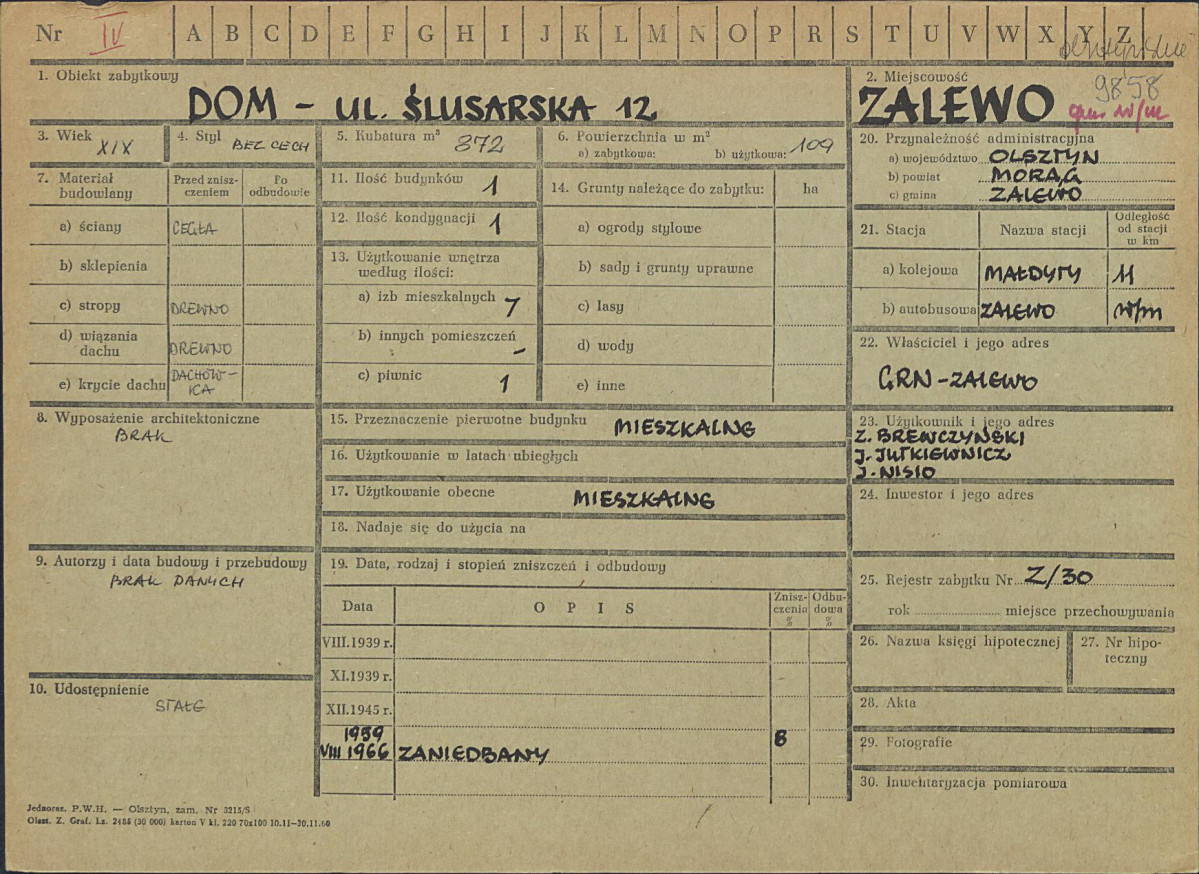 Nr IV A B C D E F G H I J K L M N O P R S T U V W X Y Z
1. Obiekt zabytkowy
DOM - UL. ŚLUSARSKA 12
2. Miejscowość
9858
ZALEWO
3. Wiek XIX
4. Styl BEZ CECH
5. Kubatura m³ 872
6. Powierzchnia w m²
a) zabytkowa: b) użytkowa: 109
7. Materiał budowlany
Przed znisz-
czeniem
Po
odbudowie
a) ściany CEGŁA
b) sklepienia
c) stropy DREWNO
d) wiązania
dachu DREWNO
e) krycie dachu DACHÓW-
KA
8. Wyposażenie architektoniczne
BRAK
9. Autorzy i data budowy i przebudowy
BRAK DANYCH
10. Udostępnienie
STAŁE
11. Ilość budynków 1
12. Ilość kondygnacji 1
13. Użytkowanie wnętrza
według ilości:
a) izb mieszkalnych 7
b) innych pomieszczeń -
c) piwnic 1
14. Grunty należące do zabytku: ha
a) ogrody stylowe
b) sady i grunty uprawne
c) lasy
d) wody
e) inne
15. Przeznaczenie pierwotne budynku MIESZKALNE
16. Użytkowanie w latach ubiegłych
17. Użytkowanie obecne MIESZKALNE
18. Nadaje się do użycia na
19. Data, rodzaj i stopień zniszczeń i odbudowy
Data OPIS Znisz-
czenia
%
Odbu-
dowa
%
VIII.1939 r.
XI.1939 r.
XII.1945 r.
1959
VIII 1966 ZANIEDBANY 8
20. Przynależność administracyjna
a) województwo OLSZTYN
b) powiat MORĄG
c) gmina ZALEWO
21. Stacja Nazwa stacji Odległość
od stacji
w km
a) kolejowa MAŁDYTY 11
b) autobusowa ZALEWO w/m
22. Właściciel i jego adres
GRN-ZALEWO
23. Użytkownik i jego adres
Z. BREWCZYŃSKI
J. JUTKIEWNICZ
J. NISIO
24. Inwestor i jego adres
25. Rejestr zabytku Nr Z/30
rok miejsce przechowywania
26. Nazwa księgi hipotecznej
27. Nr hipo-
teczny
28. Akta
29. Fotografie
30. Inwentaryzacja pomiarowa
Jednoraz. P.W.H. — Olsztyn, zam. Nr 3215/S
Olszt. Z. Graf. Lz. 2485 (30 000) karton V kl. 220 70x100 10.11—30.11.60